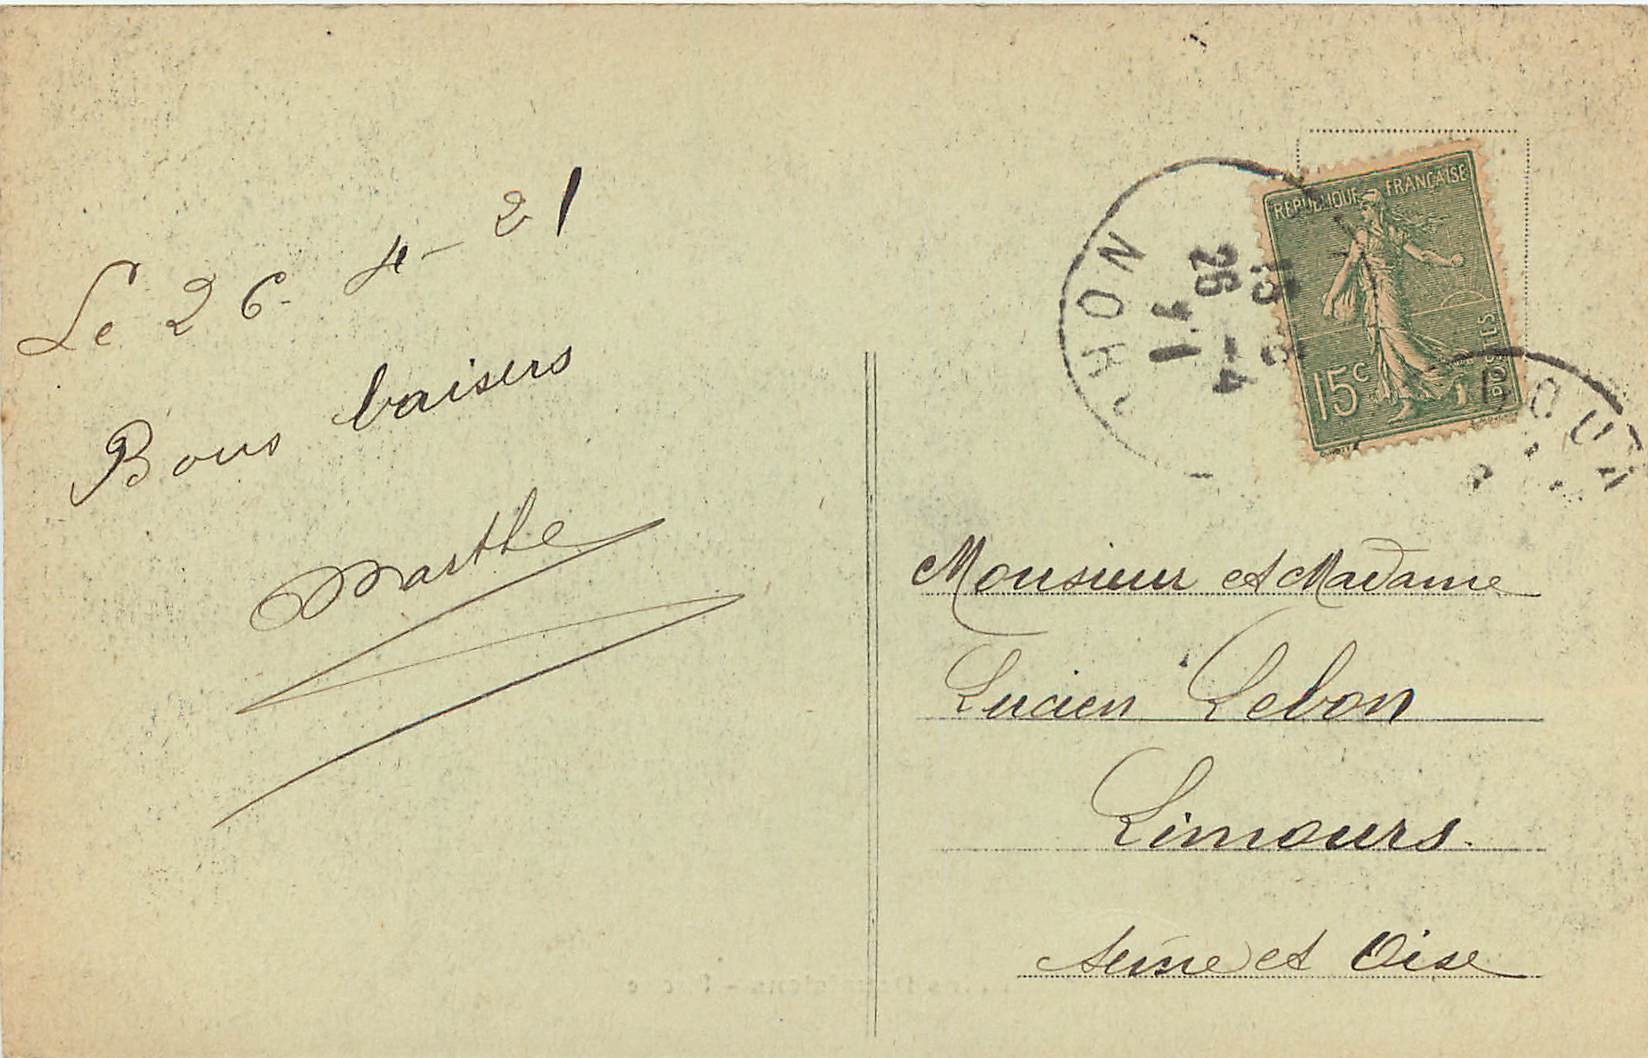 Le 26 - 4 - 21
Bons baisers
Marthe
RÉPUBLIQUE FRANÇAISE
POSTES
15c
26 - 4
Monsieur et Madame
Lucien Lebon
Limours.
Seine et Oise